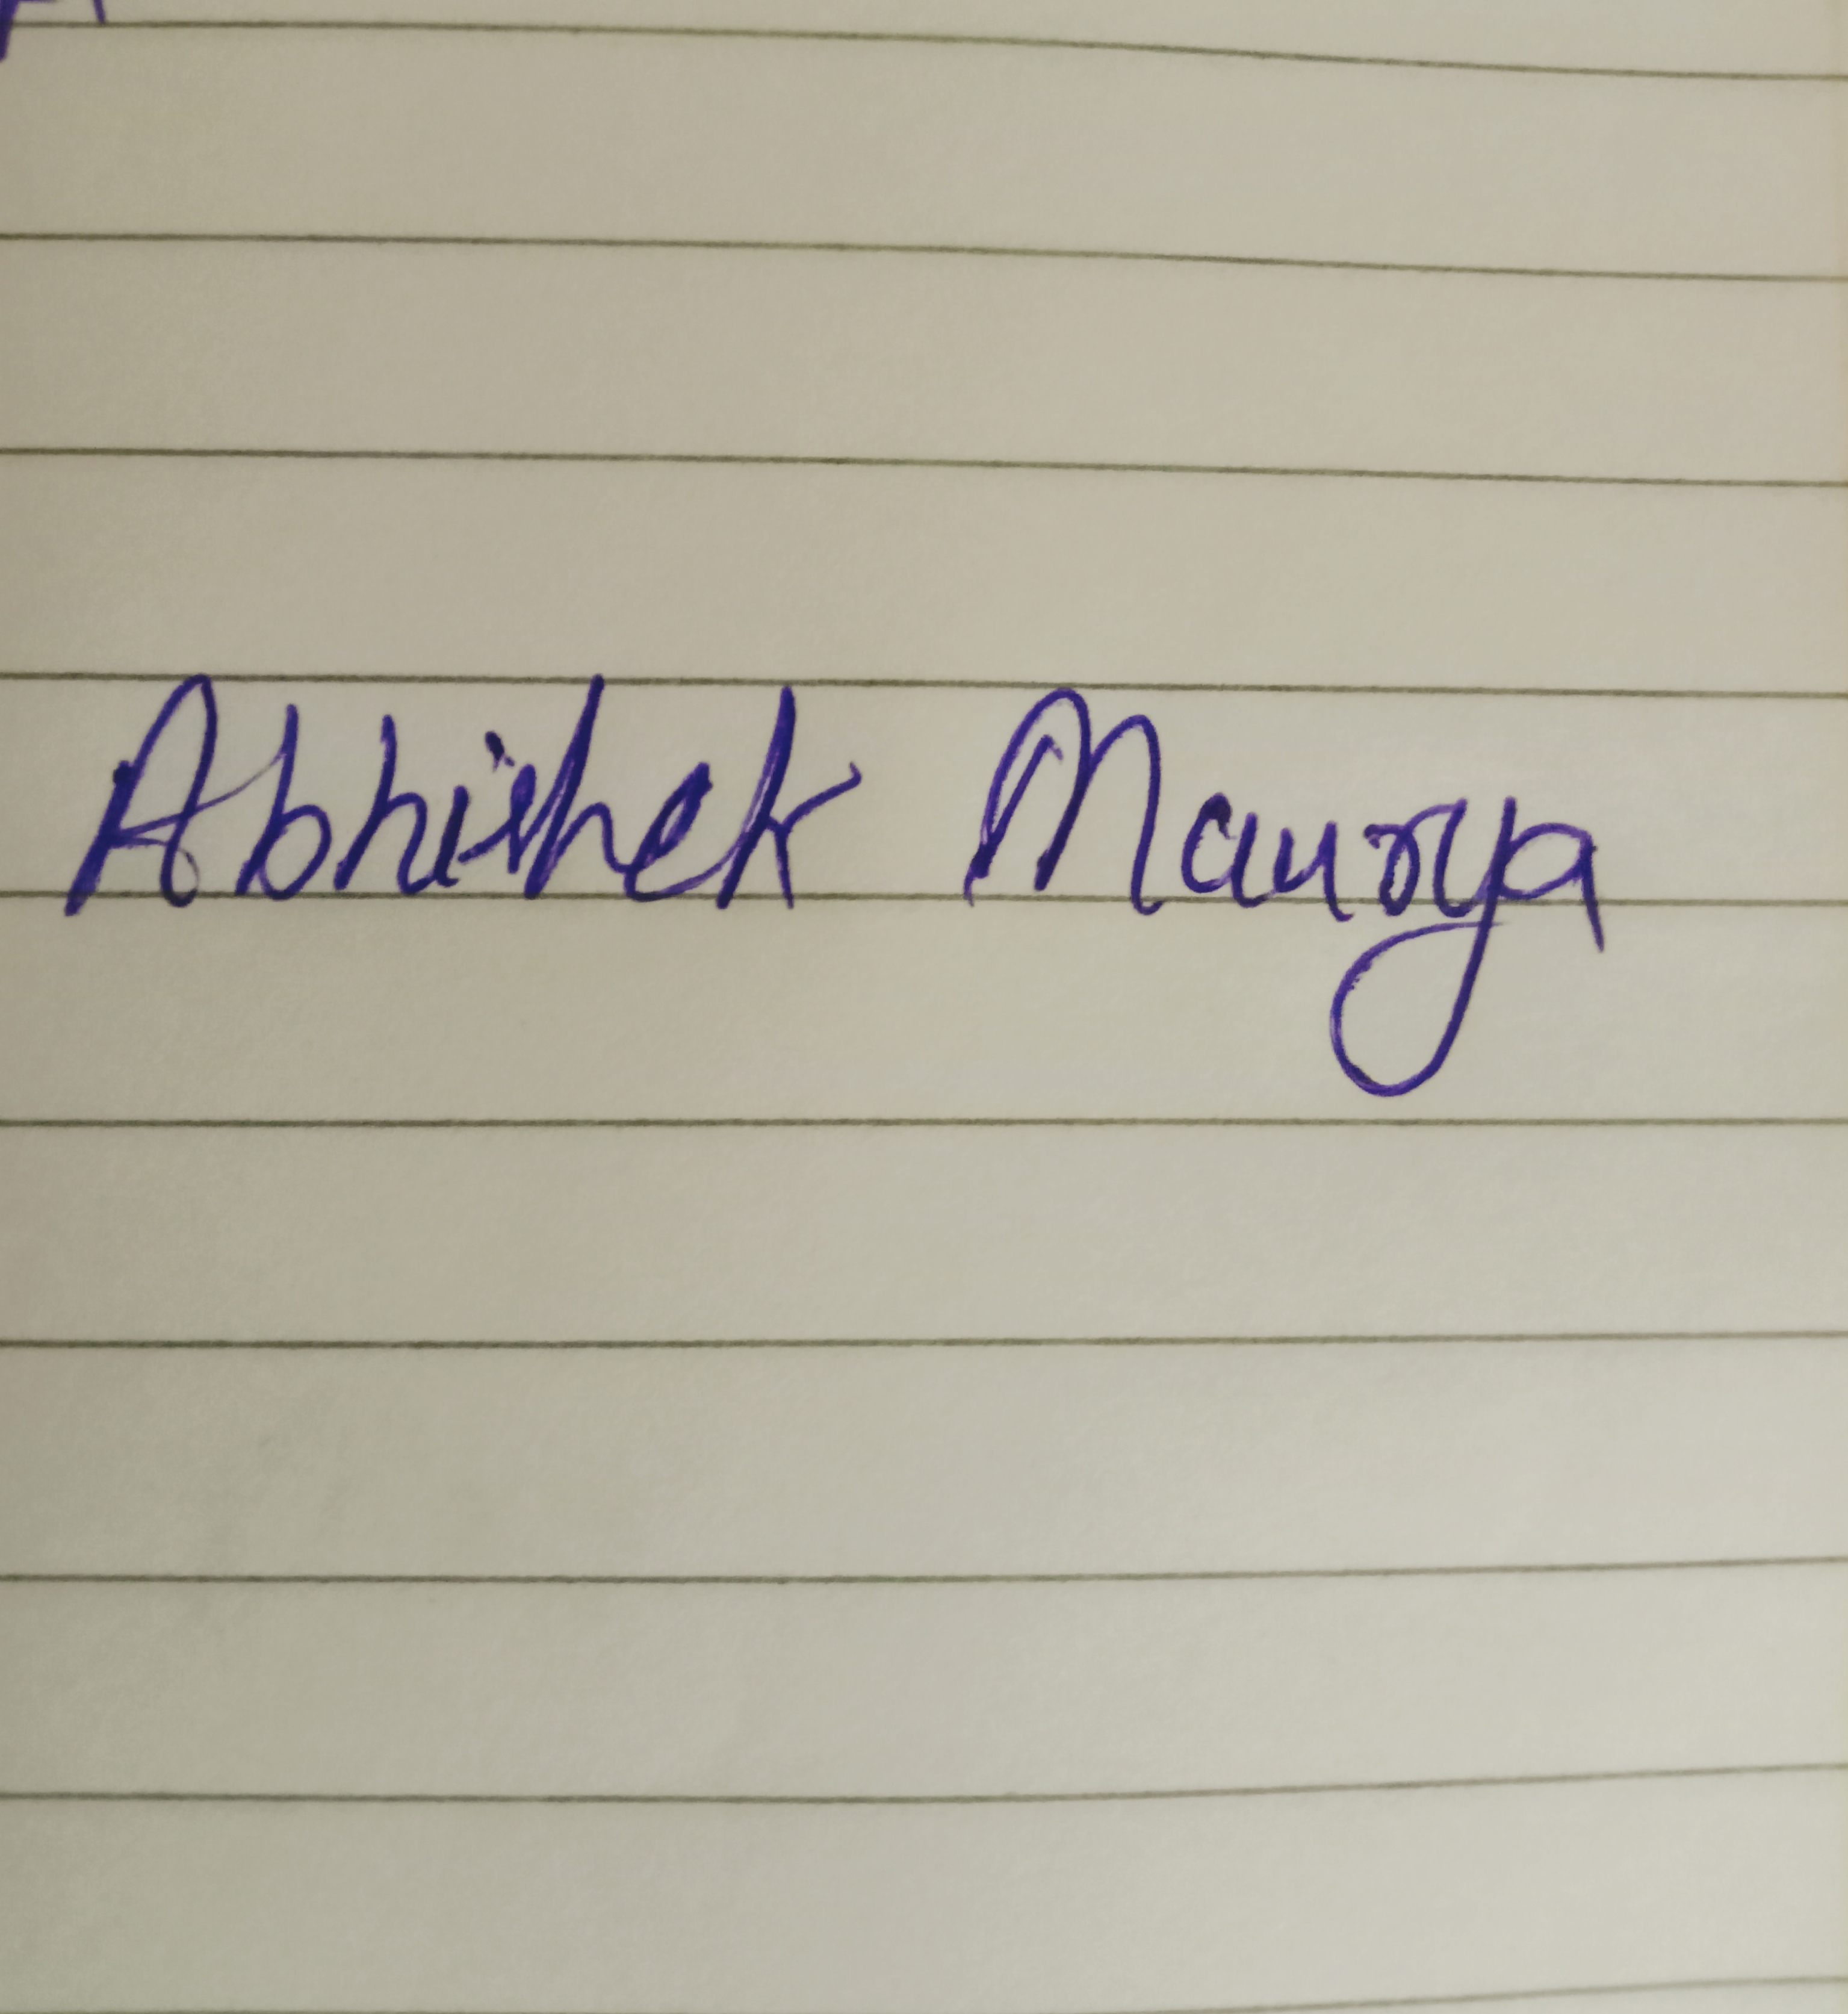 Abhishek Maurya